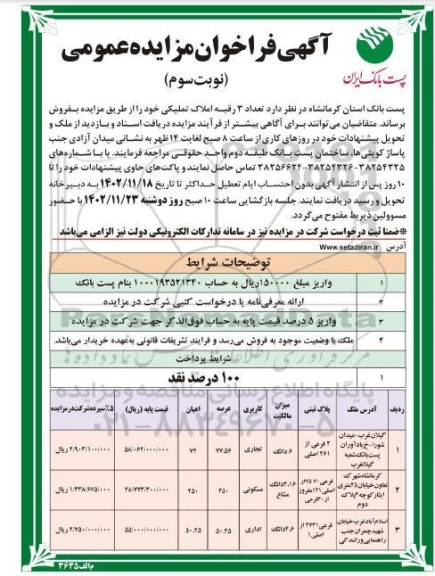 آگهی فراخوان مزایده عمومی
(نوبت سوم)
پست بانک ایران
پست بانک استان کرمانشاه در نظر دارد تعداد ۳ رقبه املاک تملیکی خود را از طریق مزایده بفروش
برساند. متقاضیان می‌توانند برای آگاهی بیشتر از فرآیند مزایده دریافت اسناد و بازدید از ملک و
تحویل پیشنهادات خود در روزهای کاری از ساعت ۸ صبح لغایت ۱۴ ظهر به نشانی میدان آزادی جنب
پاساژ کویتی‌ها، ساختمان پست بانک طبقه دوم واحد حقوقی مراجعه فرمایند. یا با شماره‌های
۳۸۲۵۴۳۲۵-۳۸۲۵۴۳۲۶-۳۸۲۵۶۶۲۴ تماس حاصل نمایند و پاکت‌های حاوی پیشنهادات خود را تا
۱۰ روز پس از انتشار آگهی بدون احتساب ایام تعطیل حداکثر تا تاریخ ۱۴۰۲/۱۱/۱۸ به دبیرخانه
تحویل و رسید دریافت نمایند. جلسه بازگشایی ساعت ۱۰ صبح روز دوشنبه ۱۴۰۲/۱۱/۲۳ با حضور
مسوولین ذیربط مفتوح می‌گردد.
※ضمنا ثبت درخواست شرکت در مزایده نیز در سامانه تدارکات الکترونیکی دولت نیز الزامی می‌باشد
آدرس www.setadiran.ir
توضیحات شرایط
۱ واریز مبلغ ۱۵۰۰۰۰۰ ریال به حساب ۱۰۰۰۱۹۳۵۲۱۳۴۰ بنام پست بانک
۲ ارائه معرفی‌نامه یا درخواست کتبی شرکت در مزایده
۳ واریز ۵ درصد قیمت پایه به حساب فوق‌الذکر جهت شرکت در مزایده
۴ ملک با وضعیت موجود به فروش می‌رسد و فرایند تشریفات قانونی به عهده خریدار می‌باشد.
شرایط پرداخت
۱ ۱۰۰ درصد نقد
ردیف آدرس ملک پلاک ثبتی میزان مالکیت کاربری عرصه اعیان قیمت پایه (ریال) ۵٪ سپرده شرکت در مزایده
۱ گیلان‌غرب-میدان شورا-خ یادآوران پست بانک شعبه گیلانغرب ۲ فرعی از ۲۶۱ اصلی ۶ دانگ تجاری ۷۷.۵۶ ۷۲ ۵۸/۰۶۲/۰۰۰/۰۰۰ ۲/۹۰۳/۱۰۰/۰۰۰ ریال
۲ کرمانشاه شهرک تعاون خیابان ۲۵ متری ایثار کوچه ۲ پلاک دوم مسکونی ۲۵۰ ۲۵۰ ۲۸/۷۷۳/۳۰۰/۰۰۰ ۱/۴۳۸/۶۶۵/۰۰۰ ریال
۳ اسلام‌آباد غرب خیابان شهید چمران جنب راهنمایی و رانندگی اداری ۵۰.۲۵ ۵۰.۲۵ ۵۵/۰۰۰/۰۰۰/۰۰۰ ۲/۷۵۰/۰۰۰/۰۰۰ ریال
۰۲۱-۸۸۳۴۹۶۷۰-۵
م الف ۳۶۳۵